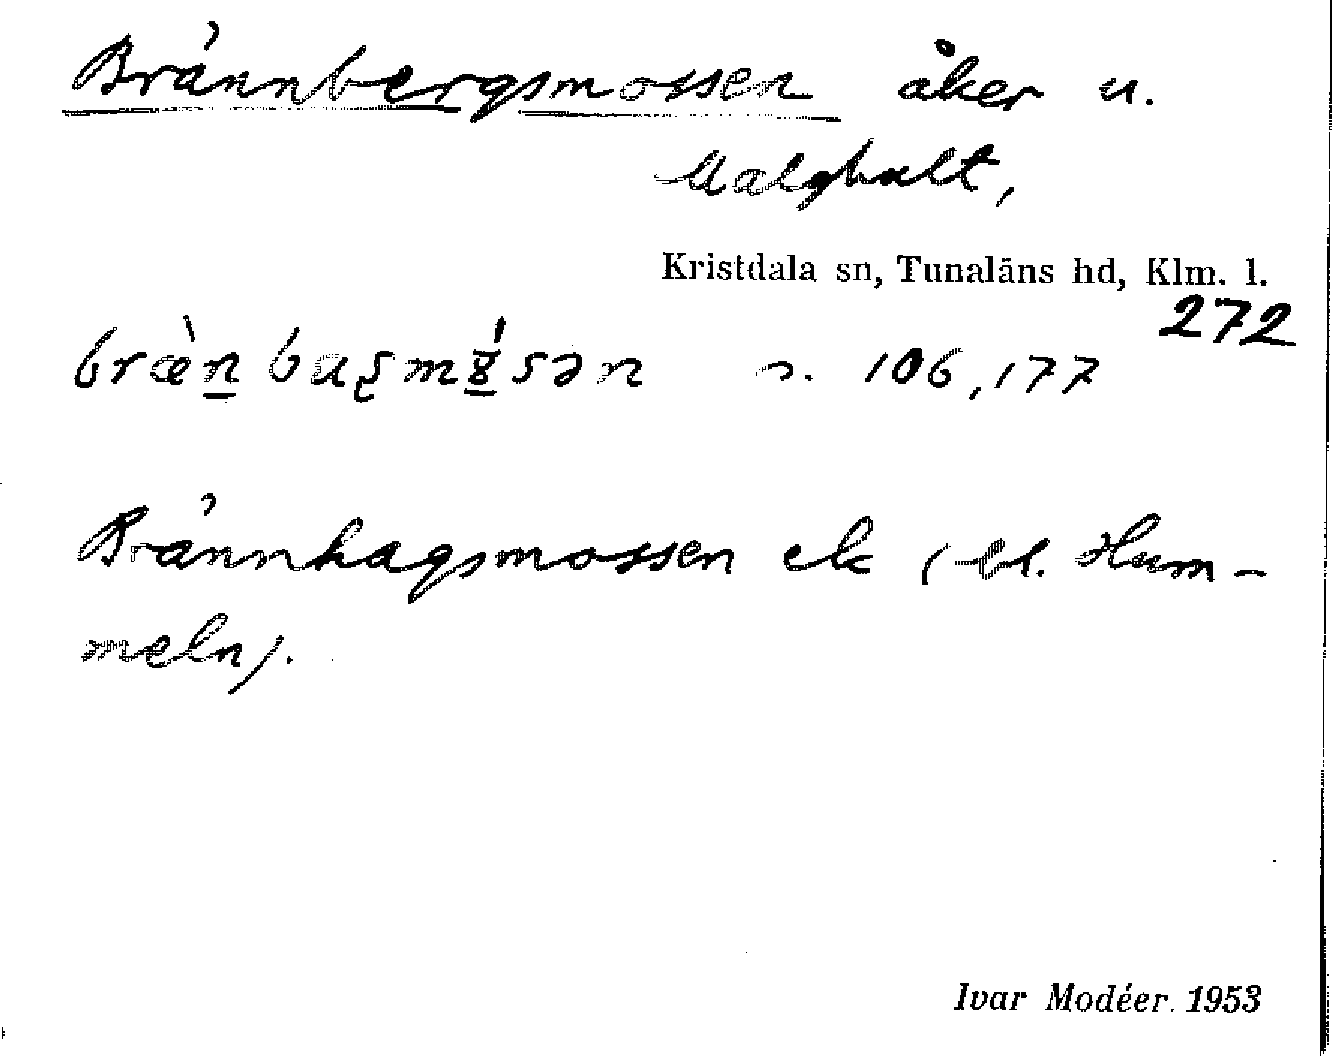 Brännbergsmossen åker u.
Malghult,
Kristdala sn, Tunaläns hd, Klm. l.
272
s. 106, 177
Brännhagsmossen ek (bl. Hum-
meln).
Ivar Modéer. 1953